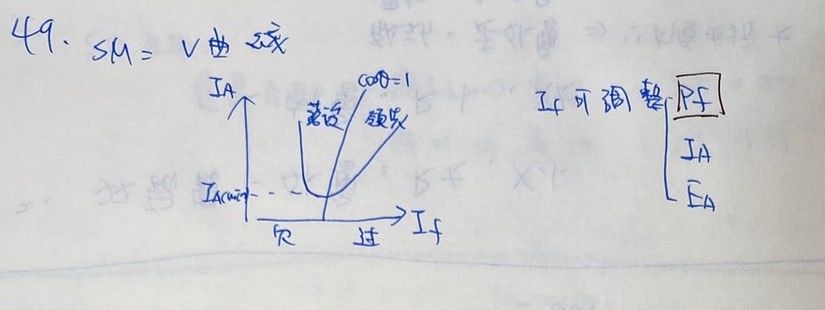 49. SM = V曲线
IA
cosθ=1
落後 領先
IA(min)
欠 过 If
If 可調整 Pf
IA
EA